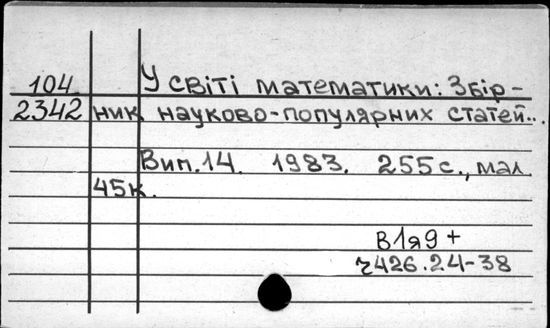 104 У світі математики: Збір-
2342 ник науково-популярних статей...
Вип. 14. 1983. 255 с., мал.
45к.
В1я9+
ч426.24-38